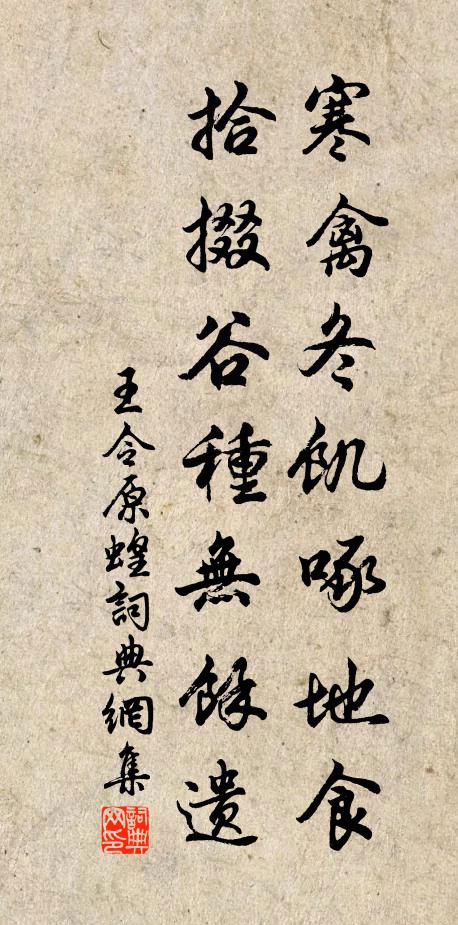 寒禽冬飢啄地食
拾掇谷種無餘遺
王令原蝗詞典網集
詞典网印